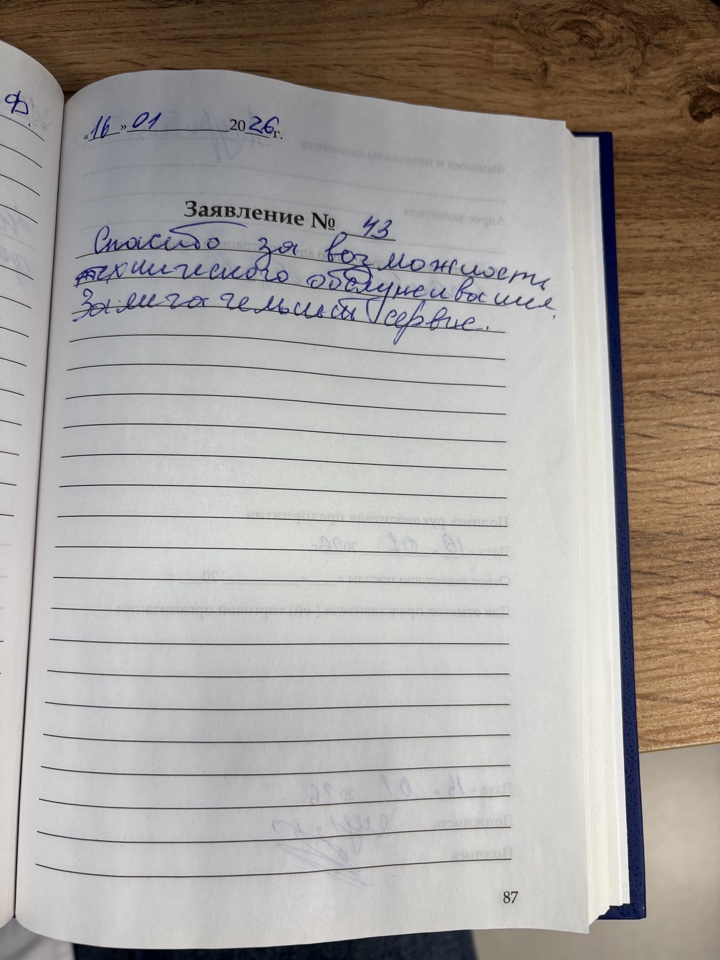 Ф.
«16» 01 2026 г.
Заявление № 43
Спасибо за возможность
технического обслуживания.
Замечательный сервис.
87